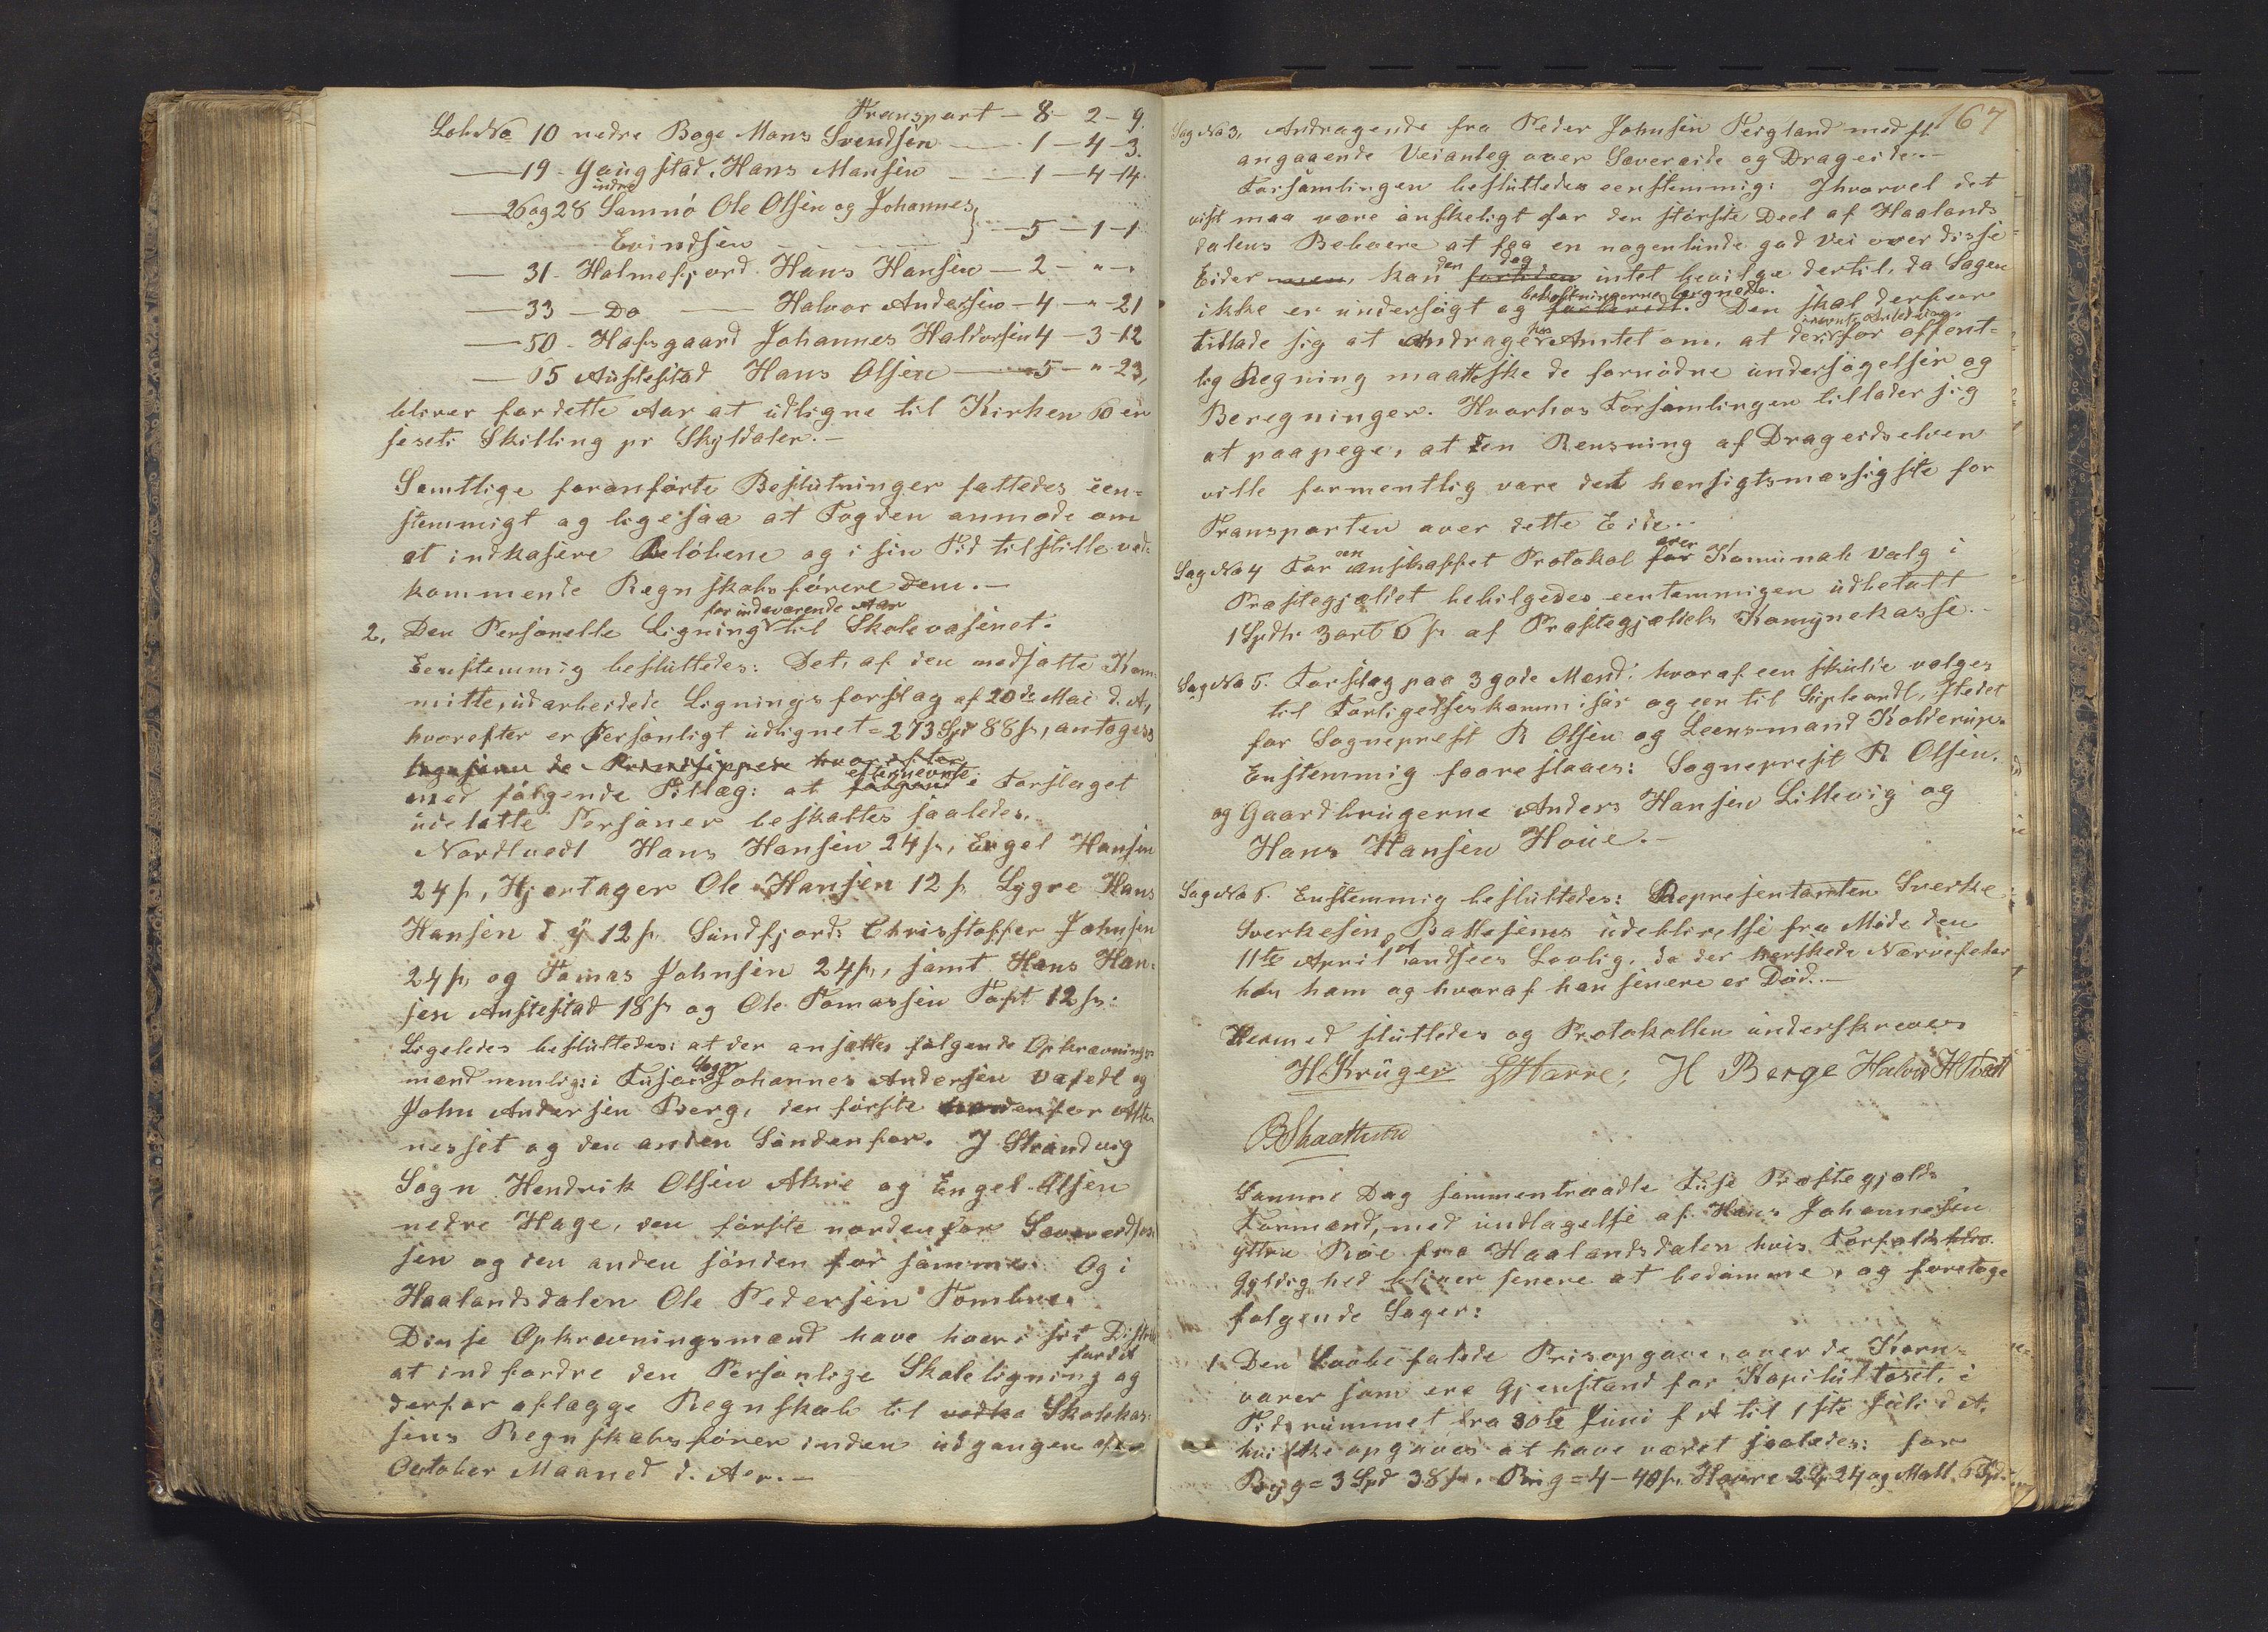 Transport - 8 - 2 - 9.
LobNo 10 nedre Bage Mons Svendsen - 1 - 4 - 3.
— 19 - Gaugstad. Hans Monsen - 1 - 4 - 14.
— 26 og 28 indre Samnö Ole Olsen og Johannes
Evindsen - 5 - 1 - 1
— 31 - Holmefjord. Hans Hansen - 2 - " - "
— 33 - Do — Halvor Andersen - 4 - " - 21
— 50 - Hafsgaard Johannes Haldorsen 4 - 3 - 12
— 65 Austestad Hans Olsen - 5 - " - 23,
bliver for dette Aar at udligne til Kirken 60 er
seseti Skilling pr Skyldaler.-
Samtlige foranförte Beslutninger fattedes een-
stemmigt og ligesaa at Fogden anmode om
at indkasere Belöbene og i sin Tid tilstille ved-
kommende Regnskabsförere Dem.-
2. Den Personelle Ligning for indeværende Aar til Skolevæsenet.
Eenstemmig besluttedes: Det, af den nedsatte Kom-
mitte, udarbeidede Ligningsforslag af 20de Mai d. A,
hvorefter er Personligt udlignet = 273 Spd 88 s, antoges
med fölgende Tillæg: at efternevnte i Forslaget
udelatte Personer beskattes saaledes.
Nordtvedt Hans Hansen 24 s, Engel Hansen
24 s, Hjortager Ole Hansen 12 s. Lygre Hans
Hansen d y 12 s. Sundfjord Christoffer Johnsen
24 s, og Tomas Johnsen 24 s, samt Hans Han-
sen Austestad 18 s og Ole Tomassen Toft 12 s:
Ligeledes besluttedes: at der ansættes fölgende Opkrævnings-
mænd nemlig: i Fuse Sogn Johannes Andersen Vafedt og
John Andersen Berg, den förste nordenfor Atte-
nesset og den anden Söndenfor. I Strandvig
Sogn Hendrik Olsen Akre og Engel Olsen
nedre Hage, den förste nordenfor Sævareidfos-
sen og den anden sönden for samme. Og i
Haalandsdalen Ole Pedersen Tombre.
Disse Opkrævningsmænd have hver i sit Distrikt
at indfordre den Personlige Skoleligning og
derfor aflægge fordet Regnskab til Skolekas-
sens Regnskabsförer inden udgangen af
October Maaned d. Aar.-
167
Sag No 3. Andragende fra Peder Johnsen Teigland med fl.
angaaende Veianleg over Sævereide og Drageide.-
Forsamlingen besluttedes eenstemmig: Ihvorvel det
vist maa være önskeligt for den störste Deel af Haalands-
dalens Beboere at faa en nogenlunde god Vei over disse
Eider kan den dog intet bevilge dertil, da Sagen
ikke er undersögt og bekostningerne beregnede. Den skal derfor
tillade sig at Andrage hos Amtet om, at derfor offent-
lig Regning maatte ske de fornödne undersögelser og
Beregninger. Hvorhos Forsamlingen tillader sig
at paapege, at en Rensning af Drageidselven
ville formentlig være det hensigtsmæssigste for
Transporten over dette Eide.-
Sag No 4 For en anskaffet Protokol over Komunale Valg i
Præstegjældet bebilgedes eentemmigen udbetalt
1 Spdlr. 3 ort 6 s. af Præstegjældets Komynekasse.-
Sag No 5. Forslag paa 3 gode Mænd: hvoraf een skulde vælges
til Forligelseskommisær og een til Supleandt, istedet
for Sogneprest R Olsen og Leensmand Kolderup.
Enstemmig foreslaaes: Sogneprest R Olsen.
og Gaardbrugerne Anders Hansen Lillevig og
Hans Hansen Houe.-
Sag No 6. Enstemmig besluttedes: Representanten Sverke
Sverkesen Baltesens udeblivelse fra Möde den
11te April andsees Lovlig, da der herskede Nervefeber
hos ham og hvoraf han senere er Död.-
Hermed sluttedes og Protokollen underskreves
H. Krüger H Berge
B Skaathun
Samme Dag sammentraadte Fuse Præstegjælds
Formænd, med undtagelse af Hans Johannesen
yttre Röe fra Haalandsdalen hvis Forfalds
Gyldighed bliver senere at bedömme, og foretoge
fölgende Sager:
1 Den Lovbefalede Prisopgave, over de Korn-
varer som ere Gjenstand for Kapitültaxt, i
Tidsrummet fra 30te Juni f A til 1ste Juli d A.
hvilke opgaves at have været saaledes: for
Byg = 3 Spd 38 s. Rug = 4 - 40 s. Havre 2 Sp 24 og Malt 6 Spd.